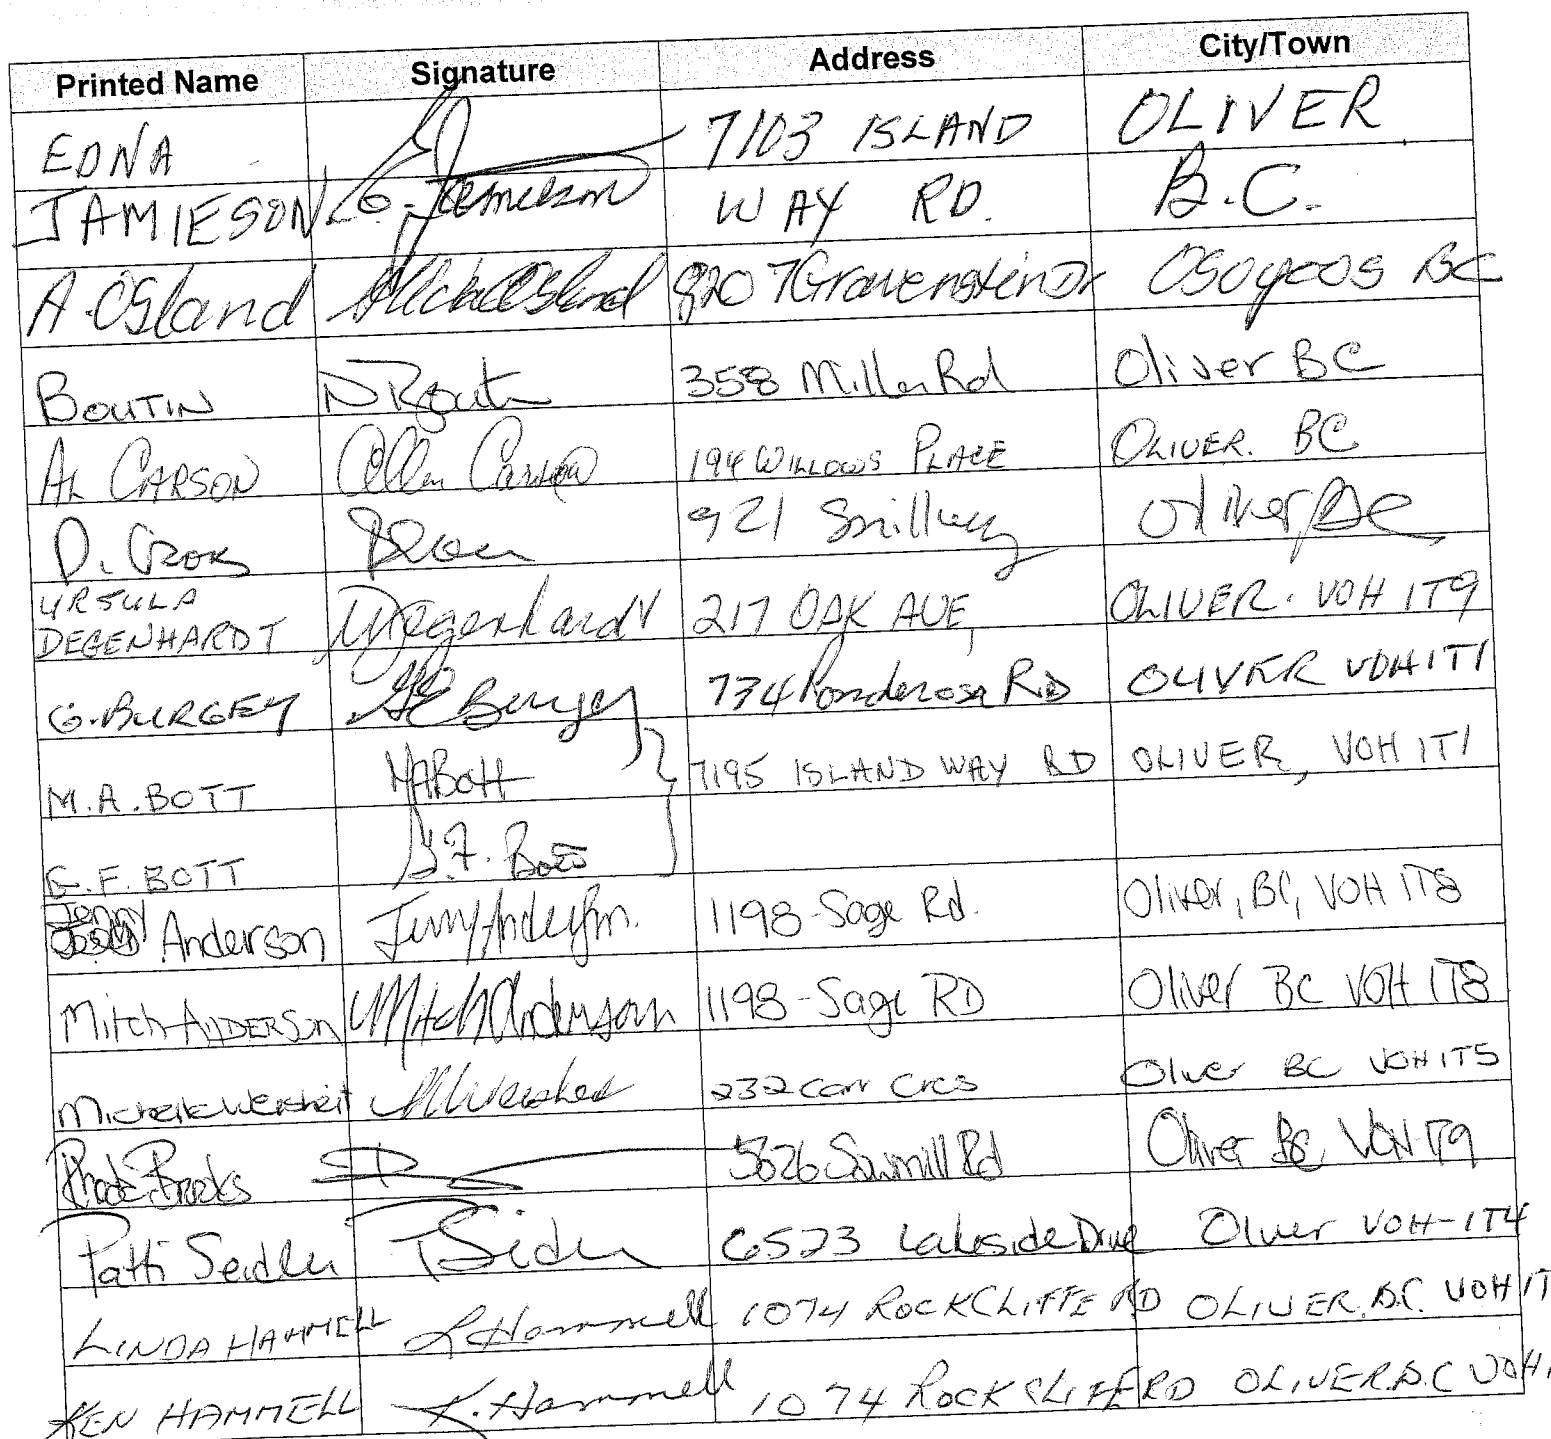 Printed Name Signature Address City/Town
EDNA 7103 ISLAND OLIVER
JAMIESON E. Jamieson WAY RD. B.C.
A. Osland 9207 Gravenstein Dr Osoyoos BC
BOUTIN 358 Miller Rd Oliver BC
AL CARSON Allen Carson 194 WILLOWS PLACE OLIVER. BC
D. 921 Spillway Oliver, BC
URSULA
DEGENHARDT UDegenhardt 217 OAK AVE, OLIVER. V0H 1T9
G. BURGEY GE Burgey 734 Ponderosa RD OLIVER V0H 1T1
M.A. BOTT MABott 7195 ISLAND WAY RD OLIVER, V0H 1T1
G.F. BOTT G.F. Bott
Jenny
Anderson Jenny Anderson 1198-Sage Rd. Oliver, BC, V0H 1T8
Mitch ANDERSON Mitch Anderson 1198-Sage RD Oliver BC V0H 1T8
Michelle 232 Carr Cres Oliver BC V0H 1T5
Brooks 5626 Sawmill Rd Oliver BC V0N 1T9
Patti Seidler PSeidler 6523 Lakeside Drive Oliver V0H-1T4
LINDA HAMMELL L Hammell 1074 ROCKCLIFFE RD OLIVER. B.C. V0H 1T
KEN HAMMELL K. Hammell 1074 ROCKCLIFFE RD OLIVER. B.C V0H